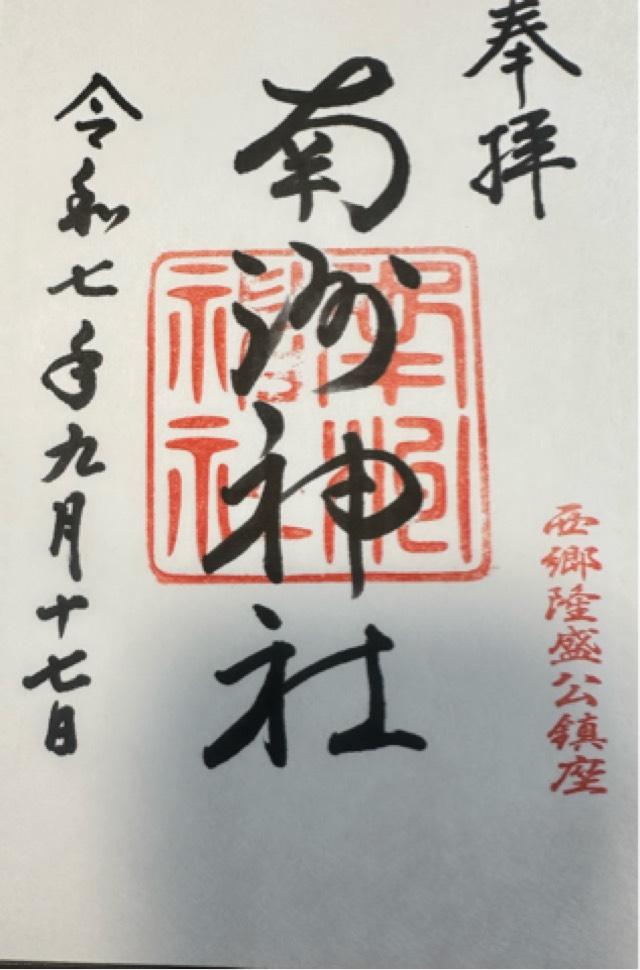 奉拝
西郷隆盛公鎮座
南洲神社
南洲神社
令和七年九月十七日